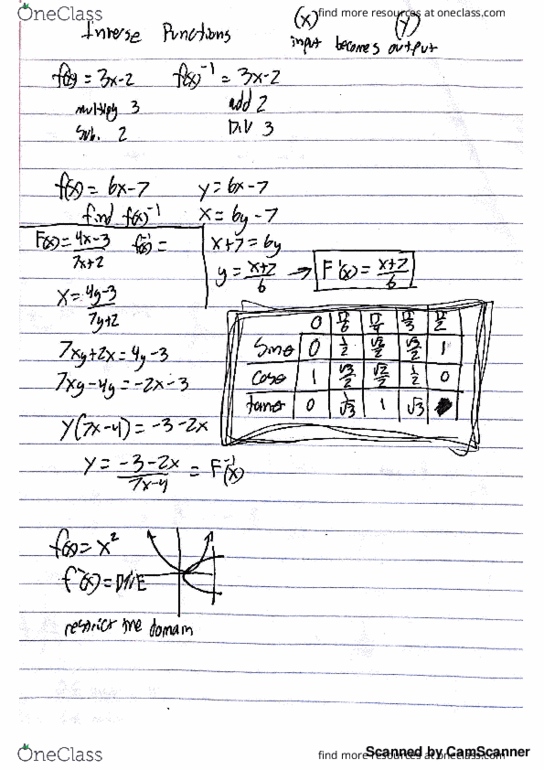 OneClass
find more resources at oneclass.com
(x) (y)
Inverse Functions input becomes output
f(x) = 3x-2 f(x)⁻¹ = 3x-2
multiply 3 add 2
Sub. 2 Div 3
f(x) = 6x-7 y = 6x-7
find f(x)⁻¹ x = 6y-7
F(x) = 4x-3 / 7x+2 f⁻¹(x) =
x+7 = 6y
y = x+7 / 6 → F⁻¹(x) = x+7 / 6
x = 4y-3 / 7y+2
7xy+2x = 4y-3
7xy-4y = -2x-3
y(7x-4) = -3-2x
y = -3-2x / 7x-4 = F⁻¹(x)
0 π/6 π/4 π/3 π/2
Sinθ 0 1/2 √2/2 √3/2 1
Cosθ 1 √3/2 √2/2 1/2 0
tanθ 0 1/√3 1 √3
f(x) = x²
f⁻¹(x) = DNE
restrict the domain
OneClass
find more resources at oneclass.com
Scanned by CamScanner